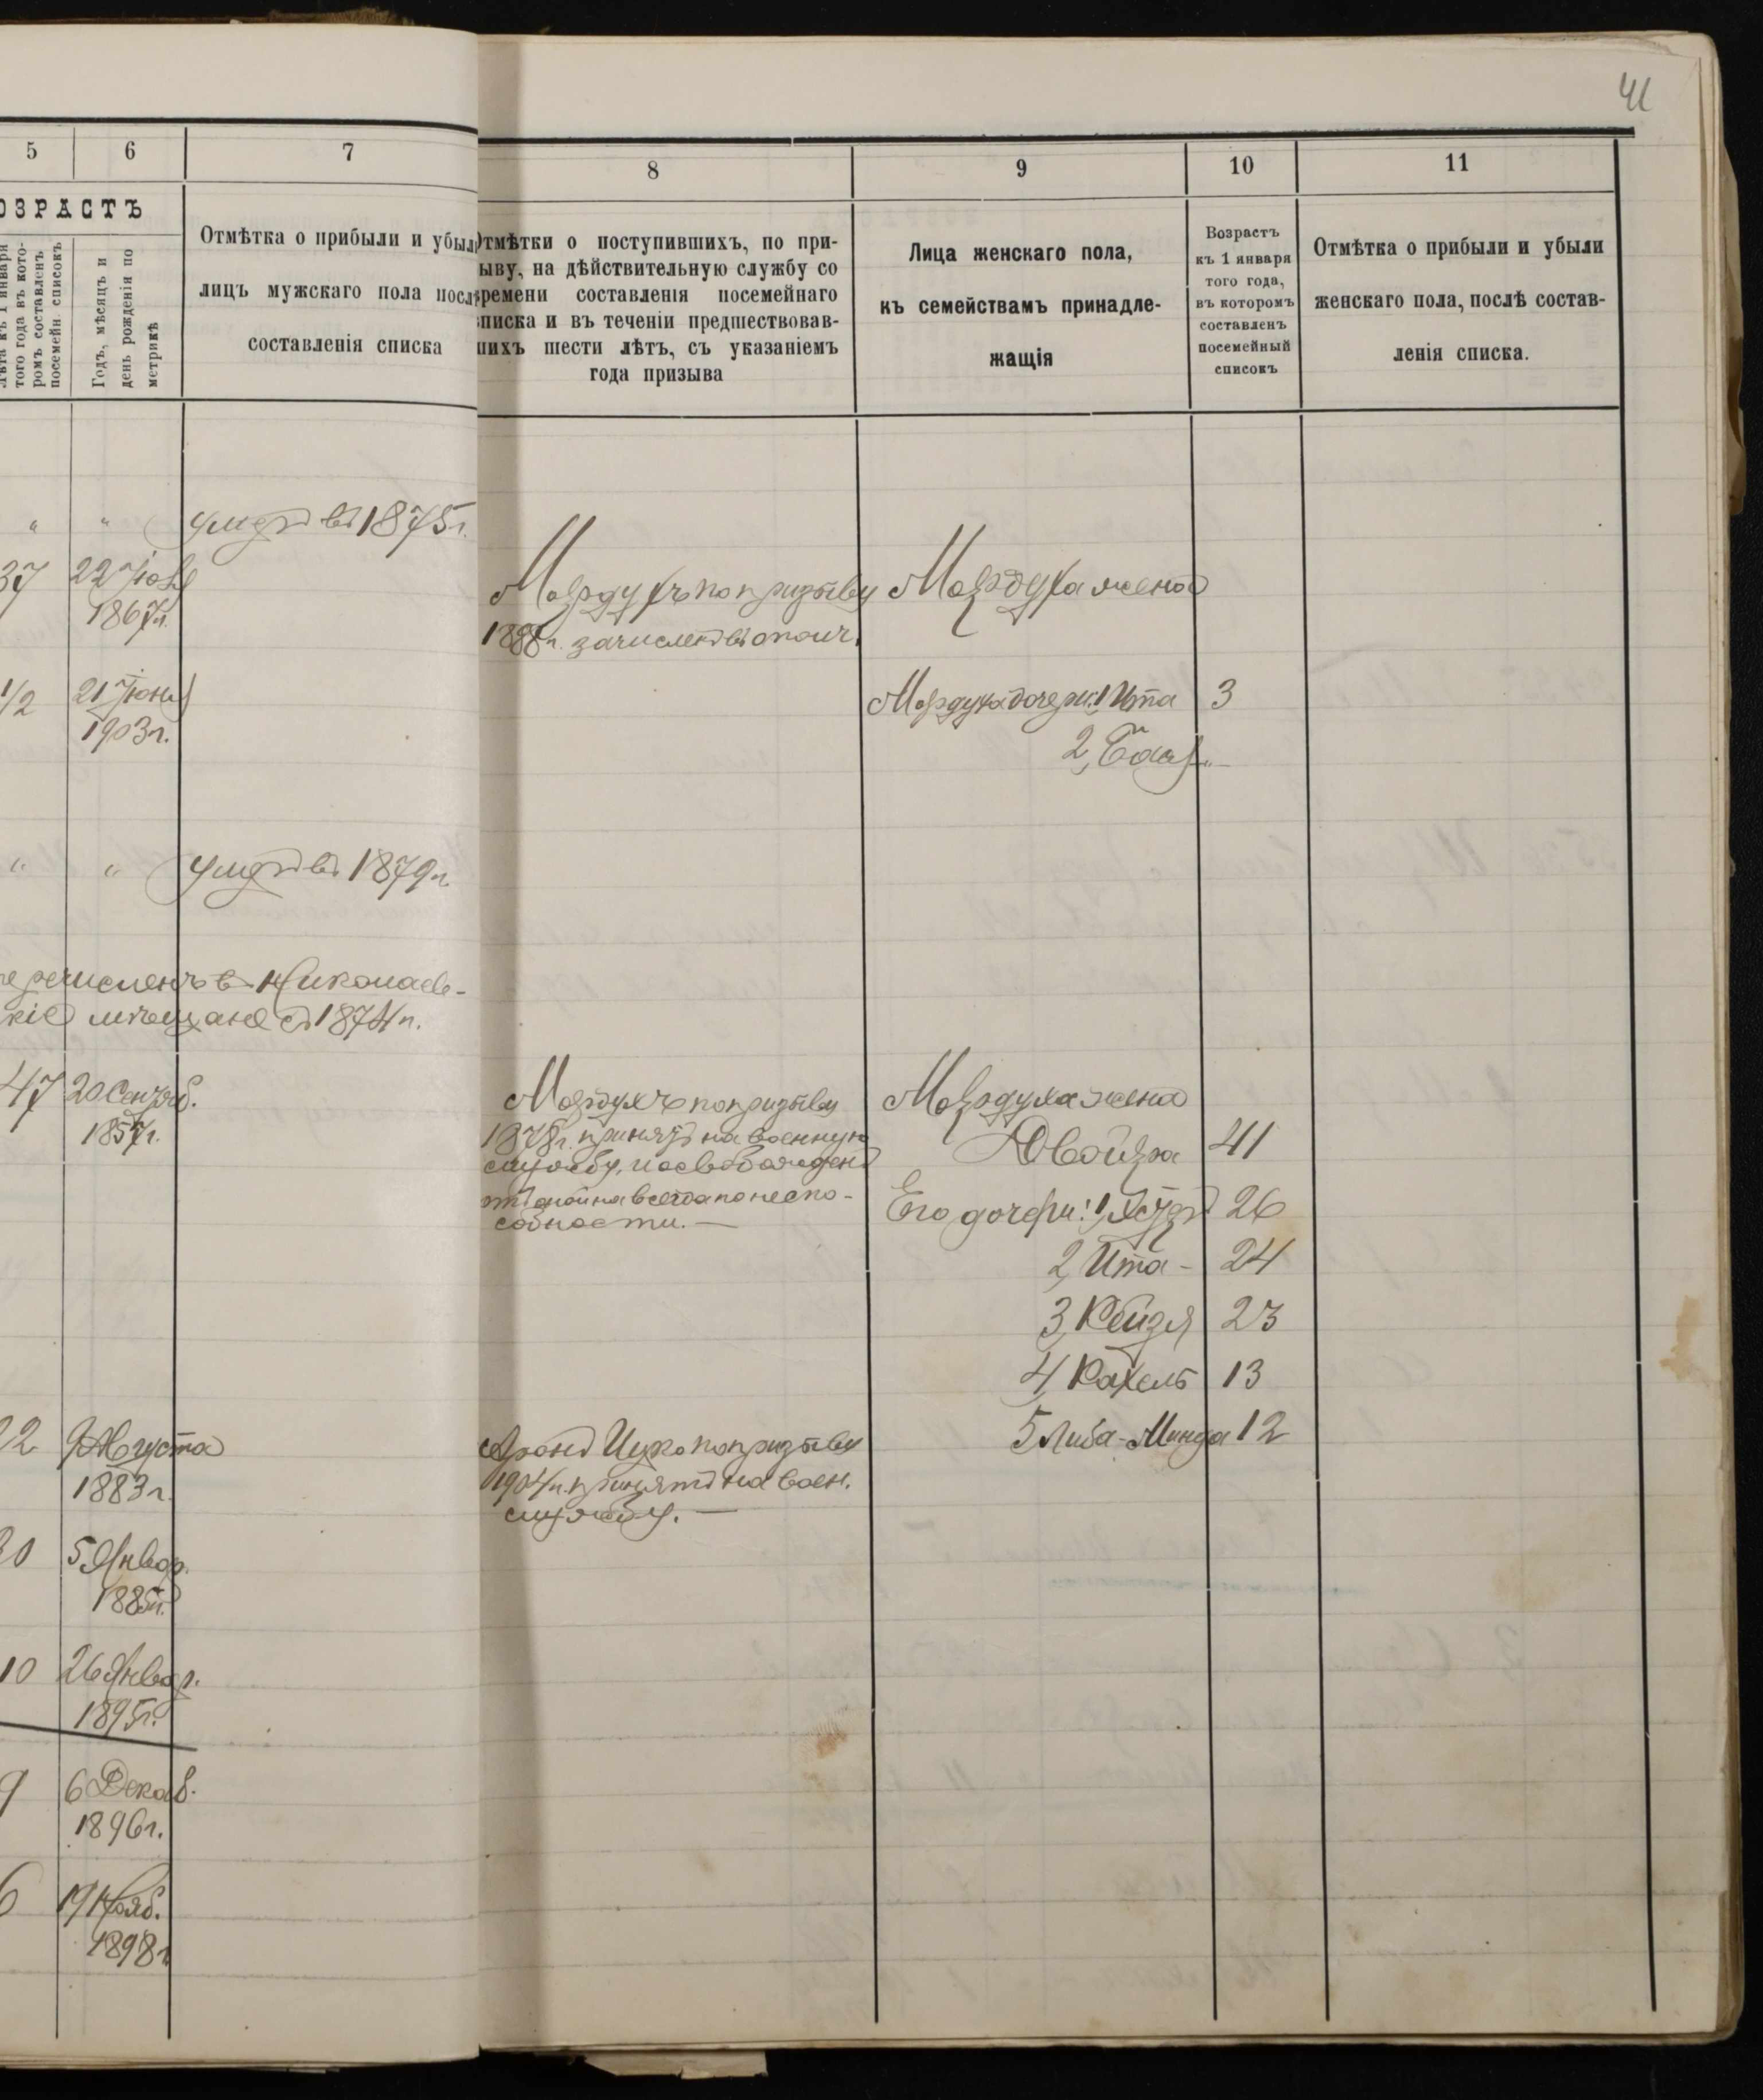 41
5
6
7
8
9
10
11
ОЗРАСТЪ
того года въ кото-
ромъ составленъ
посемейн. списокъ
Годъ, мѣсяцъ и
день рожденія по
метрикѣ
Отмѣтка о прибыли и убыли
лицъ мужскаго пола послѣ
составленія списка
Отмѣтки о поступившихъ, по при-
ыву, на дѣйствительную службу со
времени составленія посемейнаго
списка и въ теченіи предшествовав-
шихъ шести лѣтъ, съ указаніемъ
года призыва
Лица женскаго пола,
къ семействамъ принадле-
жащія
Возрастъ
къ 1 января
того года,
въ которомъ
составленъ
посемейный
списокъ
Отмѣтка о прибыли и убыли
женскаго пола, послѣ состав-
ленія списка.
" " умеръ въ 1875 г.
37 22 Іюля
1867 г.
Мордухъ по призыву
1888 г. зачисленъ въ ополч.
Мордуха жена
1/2 21 Іюня
1903 г.
Мордуха дочери: 1 Ита 3
2,
" " умеръ въ 1879 г.
перечисленъ в Николаев-
кіе мѣщане съ 1874 г.
47 20 Сентяб.
1857 г.
Мордухъ по призыву
1878 г. принятъ на военную
службу, и освобожденъ
отъ оной навсегда по неспо-
собности. —
Мордуха жена
Двойра 41
Его дочери: 1, 26
2, Ита - 24
3, Рейзя 23
4, Рахель 13
5 Либа-Минда 12
22 9 Августа
1883 г.
Аронъ Ицко по призыву
1904 г. принятъ на воен.
службу. —
20 5 Январ.
1885 г.
10 26 Январ.
1895 г.
9 6 Декаб.
1896 г.
6 19 Нояб.
1898 г.